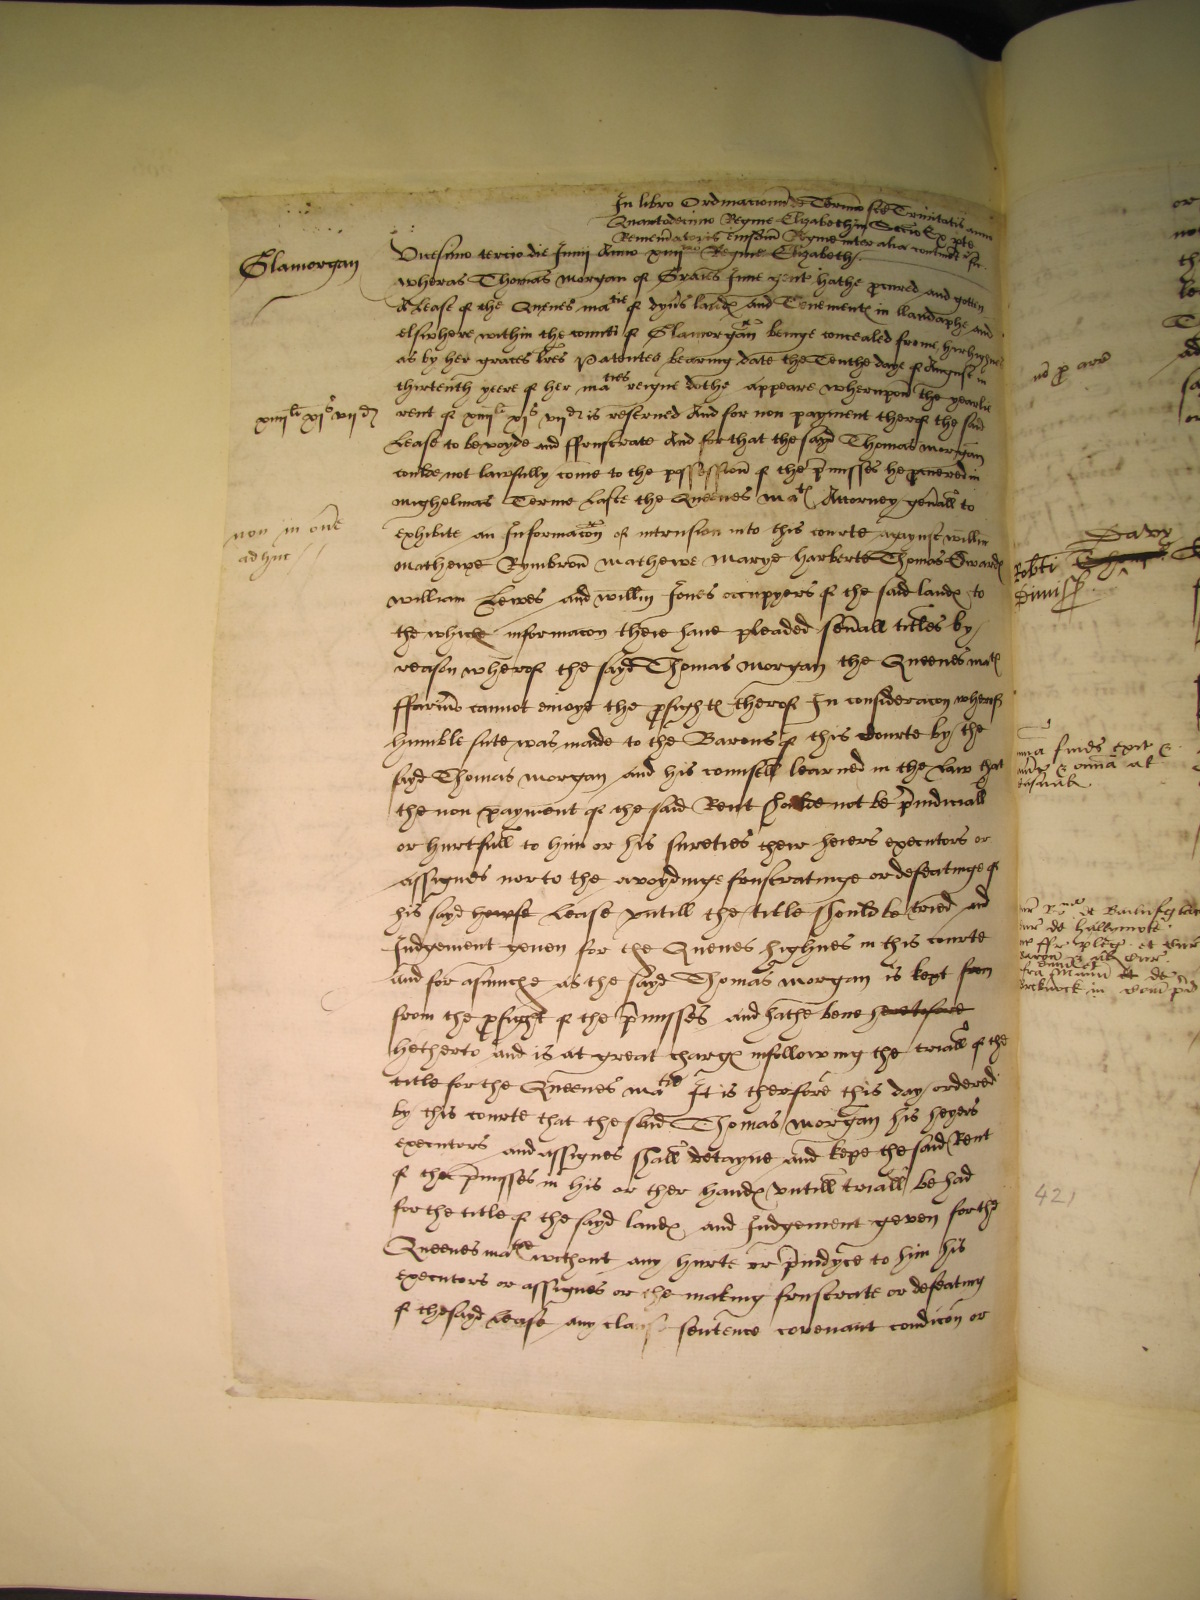 In libro Ordinacionū de Termīo scē Trinitatis anno
Quartodecimo Regine Elizabethe in Sccio Ex pte
Remēdatoris eiusdem Regine inter alia continet~ sic
Glamorgan
Vicesimo tercio die Junii Anno xiiii Regine Elizabeth
wheras Thomas morgan of Graies Inne gent hathe pcured and gotten
A Lease of the Quenes ma^tie of dyũs landℯ and Tenementℯ in llandaphe and
elswhere within the counti of Glamorgan beinge concealed frome hir highnes
as by her graces lr̃es Patentes bearing date the Tenthe daye of August in
thirtenth yeere of her ma^ties reigne dothe appeare wherupon the yearlie
xiiii^li xj^s vij^d
rent of xiiii^li xj^s vij^d is reserued And for non payment therof the said
Lease to be voyde and ffrustrate And for that the sayd Thomas morgan
coulde not lawfully come to the possession of the p̃misses he pcuered in
mighelmas Terme laste the Queenes ma^tℯ Attorney gen̄all to
non in on̄e
adhuc
exhibite an Informac̃on of intrusion into this courte agaynste willm
mathewe Rymbron mathewe marye harberte Thomas Edwardℯ
william Lewes and willm Jones occupyers of the said landℯ to
the whiche informacon there haue pleaded seũall titles by
reason wherof the sayd Thomas morgan the Queenes ma^tℯ
ffarmo cannot enioye the pfightℯ therof In consideracon wherof
humble sute was made to the Barons of this Courte by the
sayd Thomas morgan and his counsell learned in the law that
the non payment of the said Rent sholde not be p̃iudiciall
or hurtfull to him or his sureties their heiers executors or
assignes nor to the avoydinge frustratinge or defeatinge of
his sayd Lease vntill the title should be tried and
Iudgement geuen for the Quenes highnes in this courte
And for asmuche as the sayd Thomas morgan is kept from
from the pfight of the p̃misses and hathe bene heretofore
hetherto and is at great chargℯ in followeing the triall of the
title for the Queenes ma^tie It is therfore this day ordered
by this courte that the said Thomas morgan his heyers
executors and assignes shall detayne and kepe the said Rent
of the p̃misses in his or ther handℯ vntill triall be had
for the title of the sayd landℯ and Iudgement geven for the
Queenes ma^tie without any hurte or p̃iudyce to him his
executors or assignes or the making frustrate or defeating
of the sayd Lease any clause sentence covenant condicōn or
421